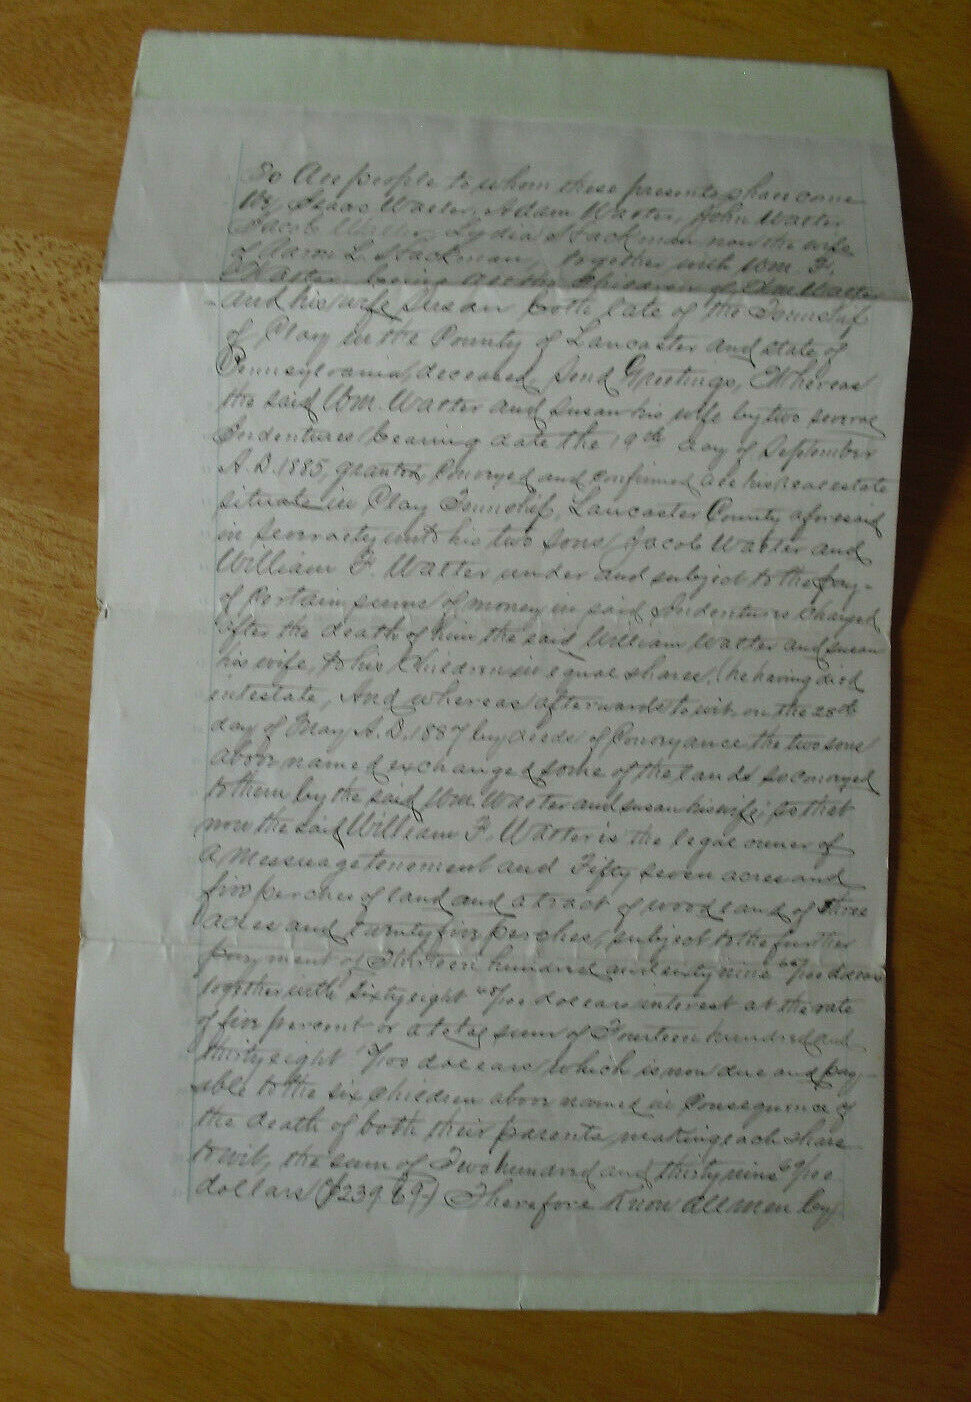 To All people to whom these presents shall come
We, Isaac Walter, Adam Walter, John Walter
Jacob Walter, Lydia Stackman, now the wife
of Aaron L. Stackman, together with Wm. F.
Walter, being all the Children of Wm. Walter
and his wife Susan both late of the Township
of Clay in the County of Lancaster and State of
Pennsylvania, deceased, Send Greetings, Whereas
the said Wm. Walter and Susan his wife by two several
Indentures bearing date the 19th day of September
A.D. 1885, granted, Conveyed and confirmed all his real estate
situate in Clay Township, Lancaster County aforesaid
in severalty unto his two sons Jacob Walter and
William F. Walter under and subject to the pay-
of certain sums of money in said Indentures Charged
after the death of him the said William Walter and Susan
his wife, to his Children in equal shares, he having died
intestate, And whereas afterwards to wit, on the 28th
day of May A.D. 1887 by deeds of Conveyance the two sons
above named exchanged some of the lands so conveyed
to them by the said Wm. Walter and Susan his wife; so that
now the said William F. Walter is the legal owner of
A Messuage tenement and Fifty seven acres and
five perches of land and a tract of woodland of Three
acres and twenty five perches, subject to the further
payment of Thirteen hundred and sixty nine /100 dollars
together with Sixty eight /100 dollars interest at the rate
of five percent or a total sum of Fourteen hundred and
thirty eight /100 dollars which is now due and pay-
able to the six Children above named in Consequence of
the death of both their parents, making each share
to wit, the sum of Two hundred and thirty nine 69/100
dollars ($239.69) Therefore Know all men by